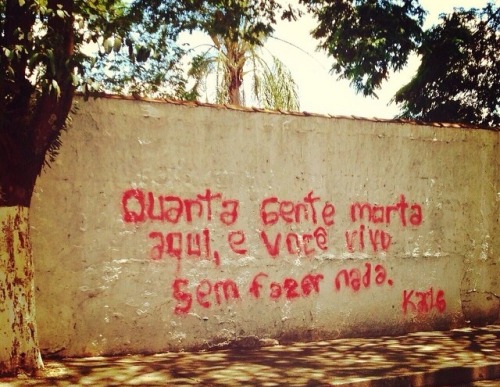 Quanta Gente morta
aqui, e você vivo
sem fazer nada.